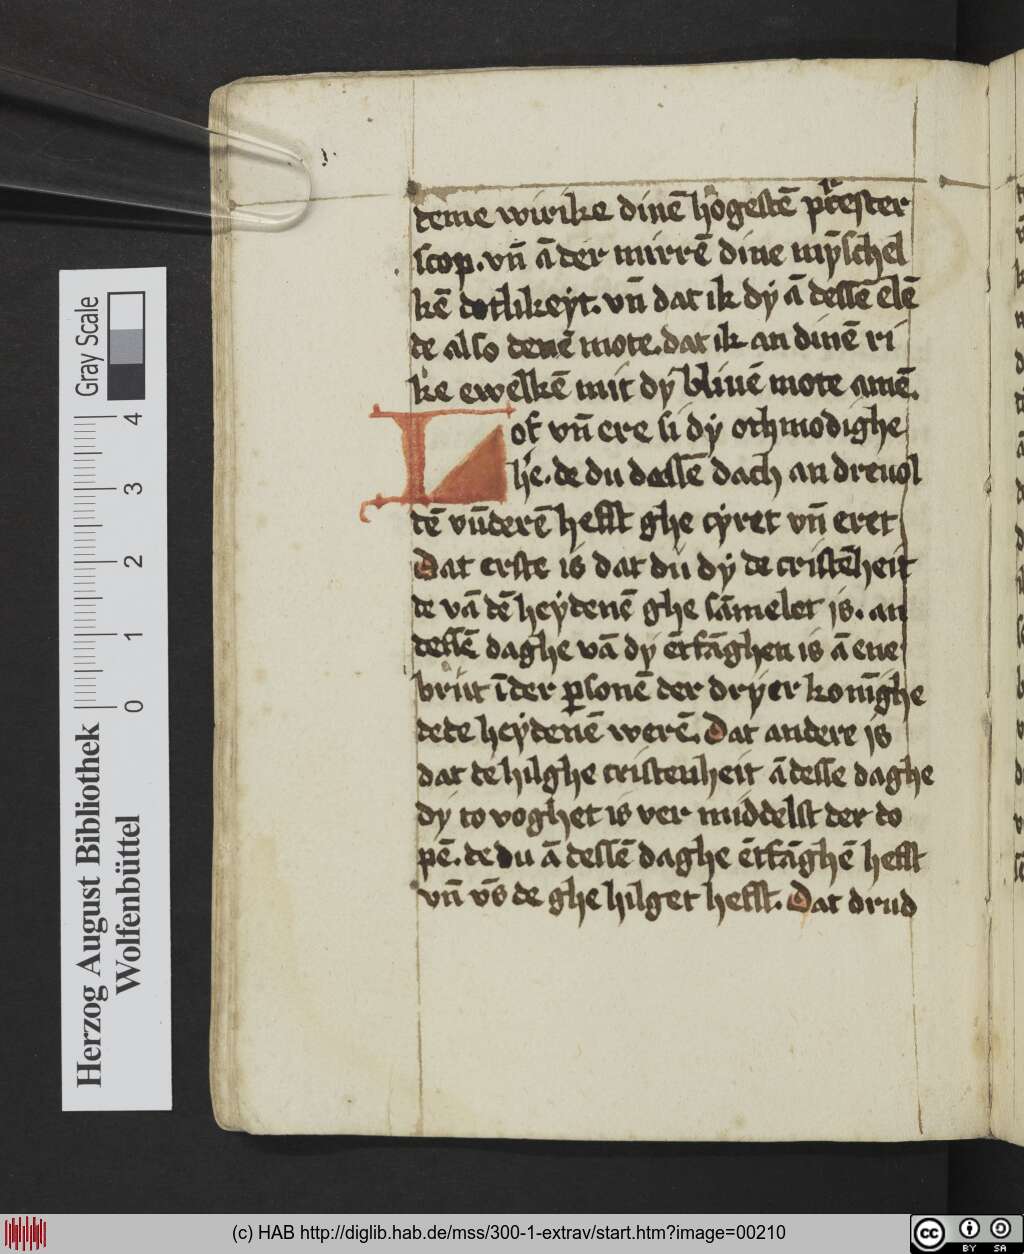 deme wirike dinē hogestē prester
scop. vn̄ ā der mirrē dine mȳschel
kē dotlikeyt. vn̄ dat ik dÿ ā dessē elē
de also denē mote. dat ik an dinē ri
ke ewelkē mit dÿ bliuē mote amē.
Lof vn̄ ere si dÿ othmodighe
he. de du dessē dach an dreuol
tē vn̄derē hefst ghe cÿret vn̄ eret
Dat erste is dat du dÿ de cristēheit
de vā dē heÿdenē ghe sāmelet is. an
dessē daghe vā dÿ ētfāghen is ā ene
brut ī der ꝑsonē der drÿer konīghe
dede heÿdenē werē. Dat andere is
dat de hilghe cristenheit ā desse daghe
dÿ to voghet is ver middelst der do
pē. de du ā dessē daghe ētfāghē hefst
vn̄ vs̄ de ghe hilget hefst. Dat drud
Herzog August Bibliothek
Wolfenbüttel
0 1 2 3 4
Gray Scale
(c) HAB http://diglib.hab.de/mss/300-1-extrav/start.htm?image=00210
cc BY SA